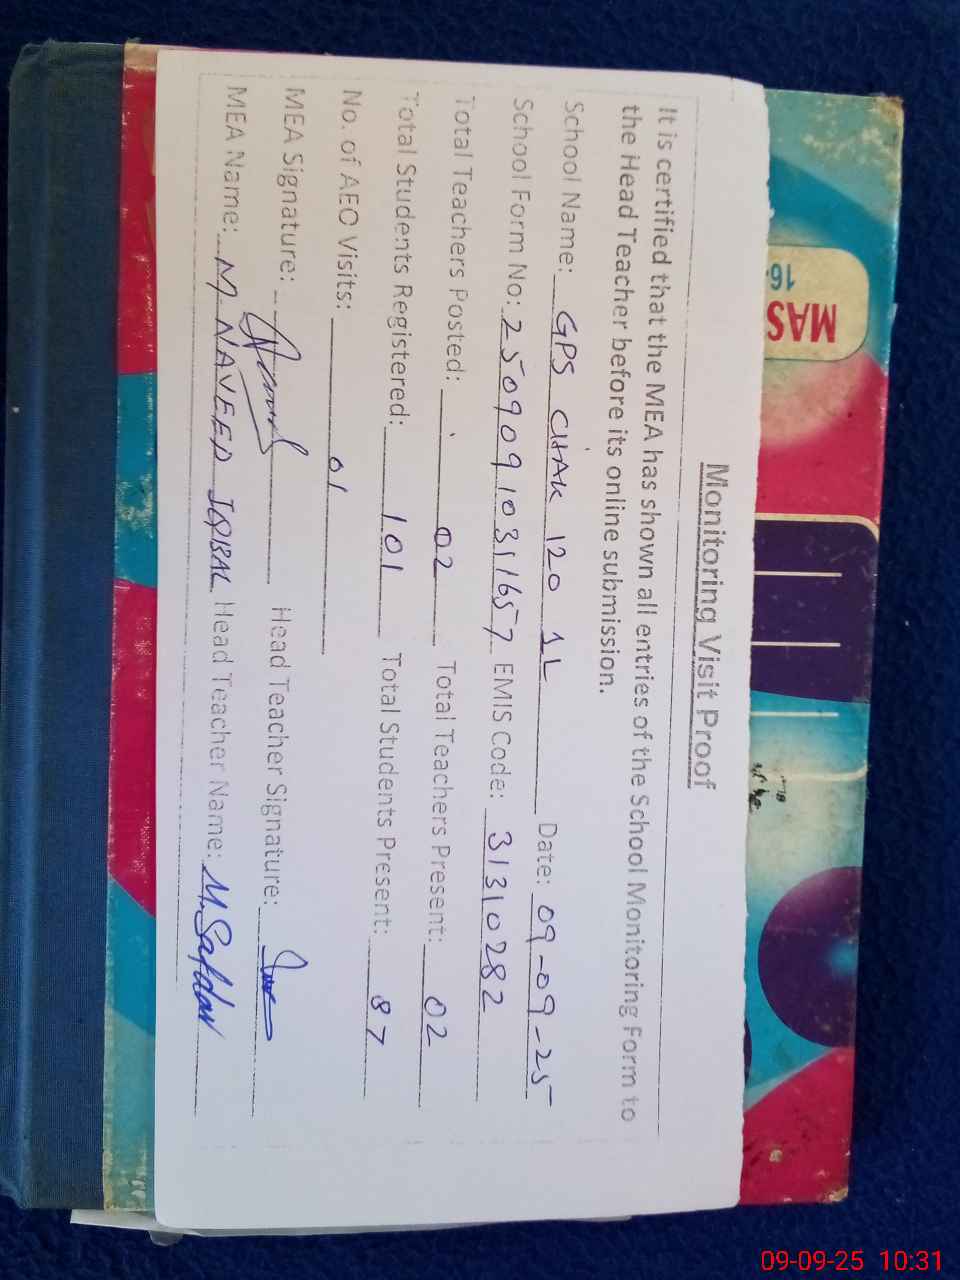 Monitoring Visit Proof
It is certified that the MEA has shown all entries of the School Monitoring Form to
the Head Teacher before its online submission.
School Name: GPS CHAK 120 1L Date: 09-09-25
School Form No: 25090910311657 EMIS Code: 31310282
Total Teachers Posted: 02 Total Teachers Present: 02
Total Students Registered: 101 Total Students Present: 87
No. of AEO Visits: 01
MEA Signature: Head Teacher Signature:
MEA Name: M NAVEED IQBAL Head Teacher Name: M.Safdar
MAS
16
09-09-25 10:31